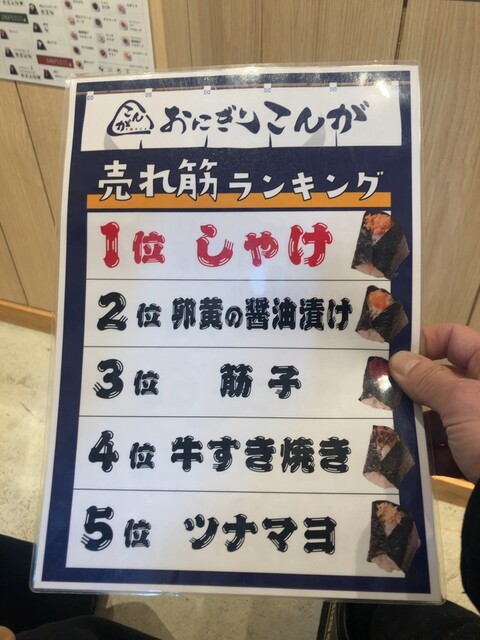 こんが
おにぎりこんが
売れ筋ランキング
1位 しゃけ
2位 卵黄の醤油漬け
3位 筋子
4位 牛すき焼き
5位 ツナマヨ